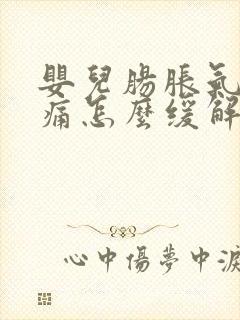 嬰兒腸脹氣
痛怎麼緩解
心中傷夢中淚